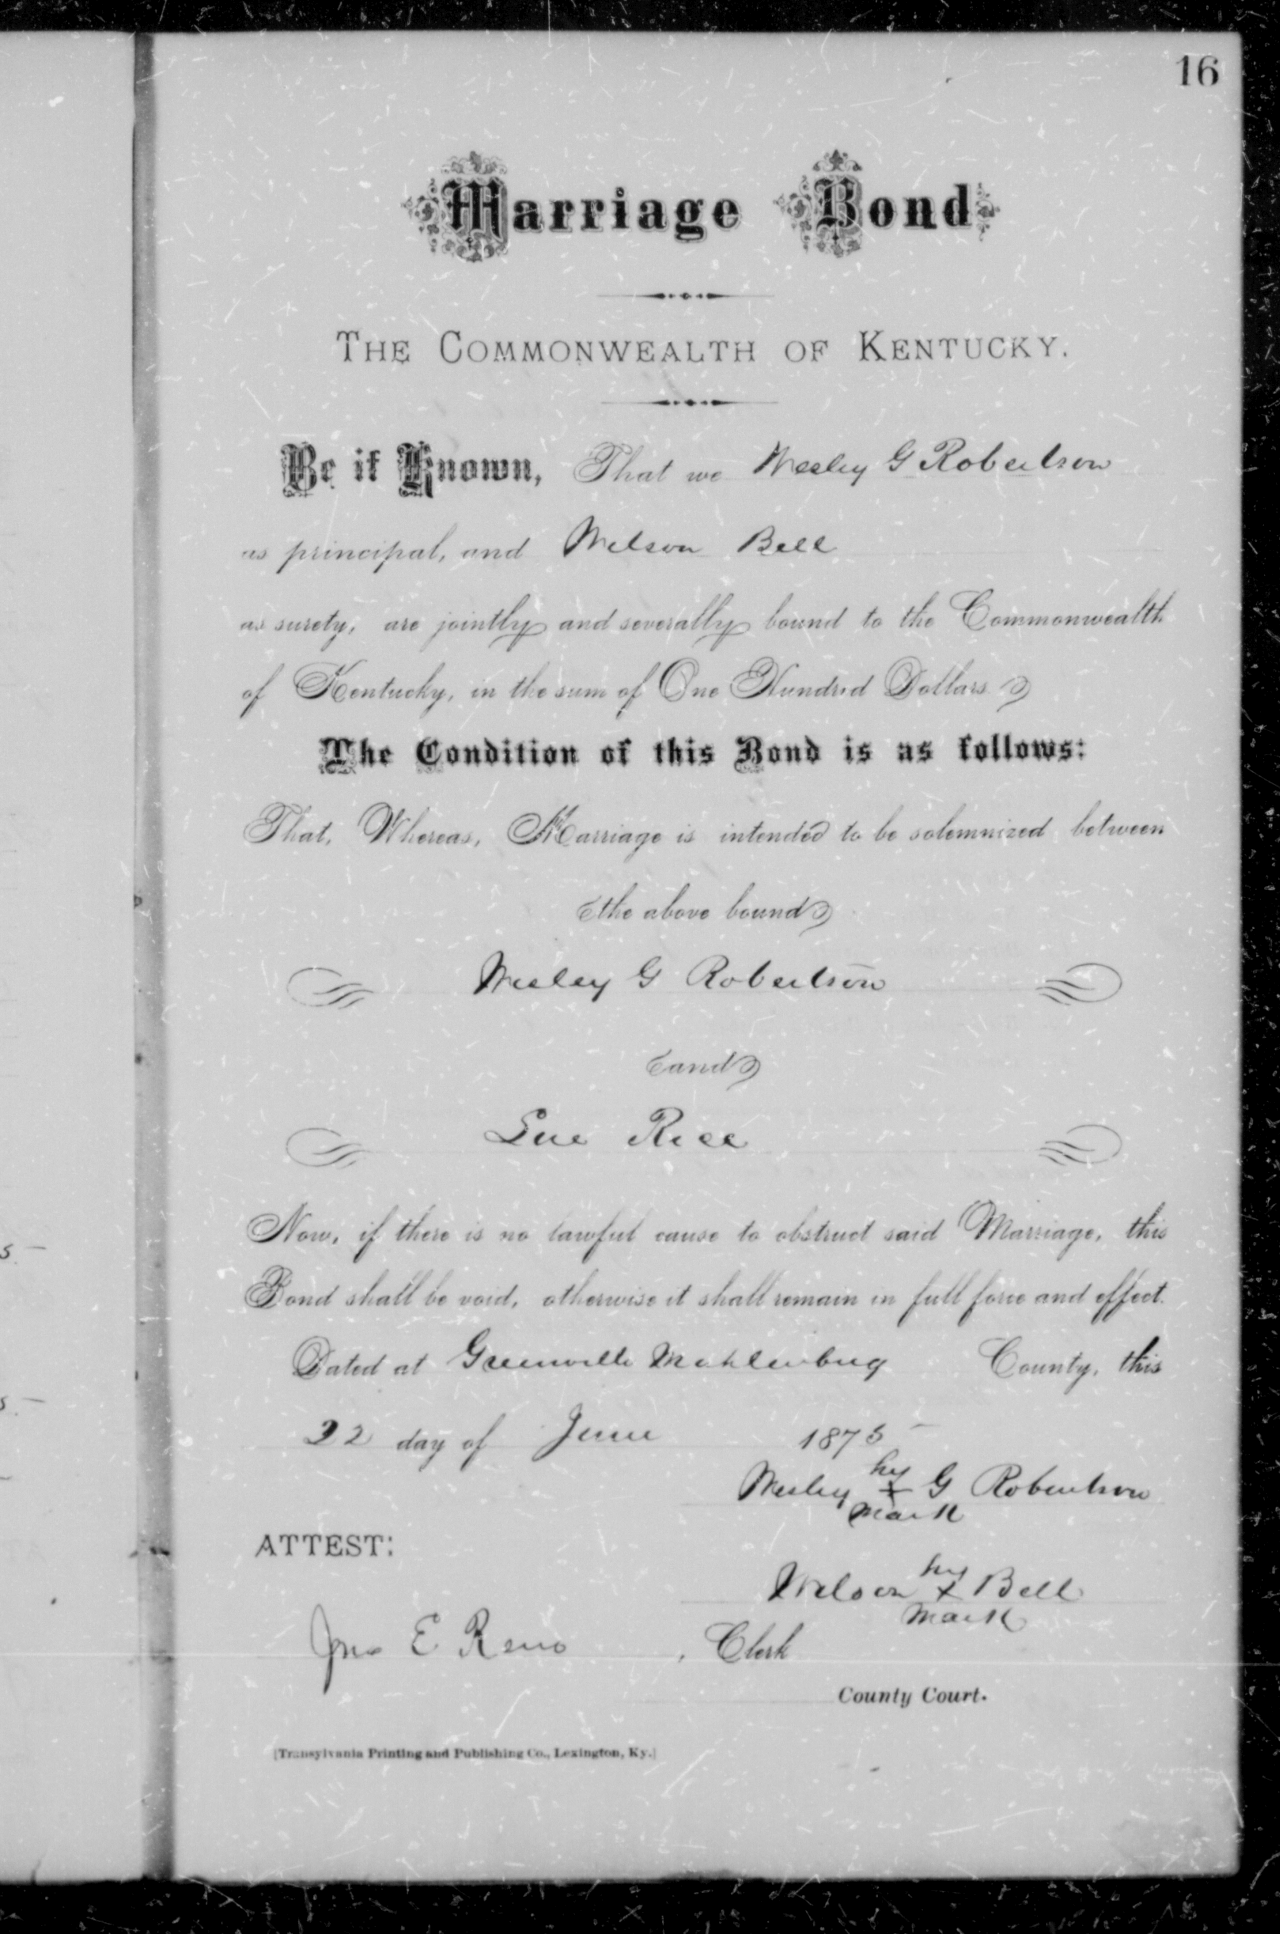 16
Marriage Bond
THE COMMONWEALTH OF KENTUCKY.
Be it Known, That we Wesley G Robertson
as principal, and Wilson Bell
as surety, are jointly and severally bound to the Commonwealth
of Kentucky, in the sum of One Hundred Dollars.
The Condition of this Bond is as follows:
That, Whereas, Marriage is intended to be solemnized between
the above bound
Wesley G Robertson
and
Sue Rice
Now, if there is no lawful cause to obstruct said Marriage, this
Bond shall be void, otherwise it shall remain in full force and effect.
Dated at Greenville Muhlenburg County, this
22 day of June 1875
Wesley his X mark G Robertson
ATTEST:
Wilson his X mark Bell
Jno E Reno, Clerk
County Court.
[Transylvania Printing and Publishing Co., Lexington, Ky.]